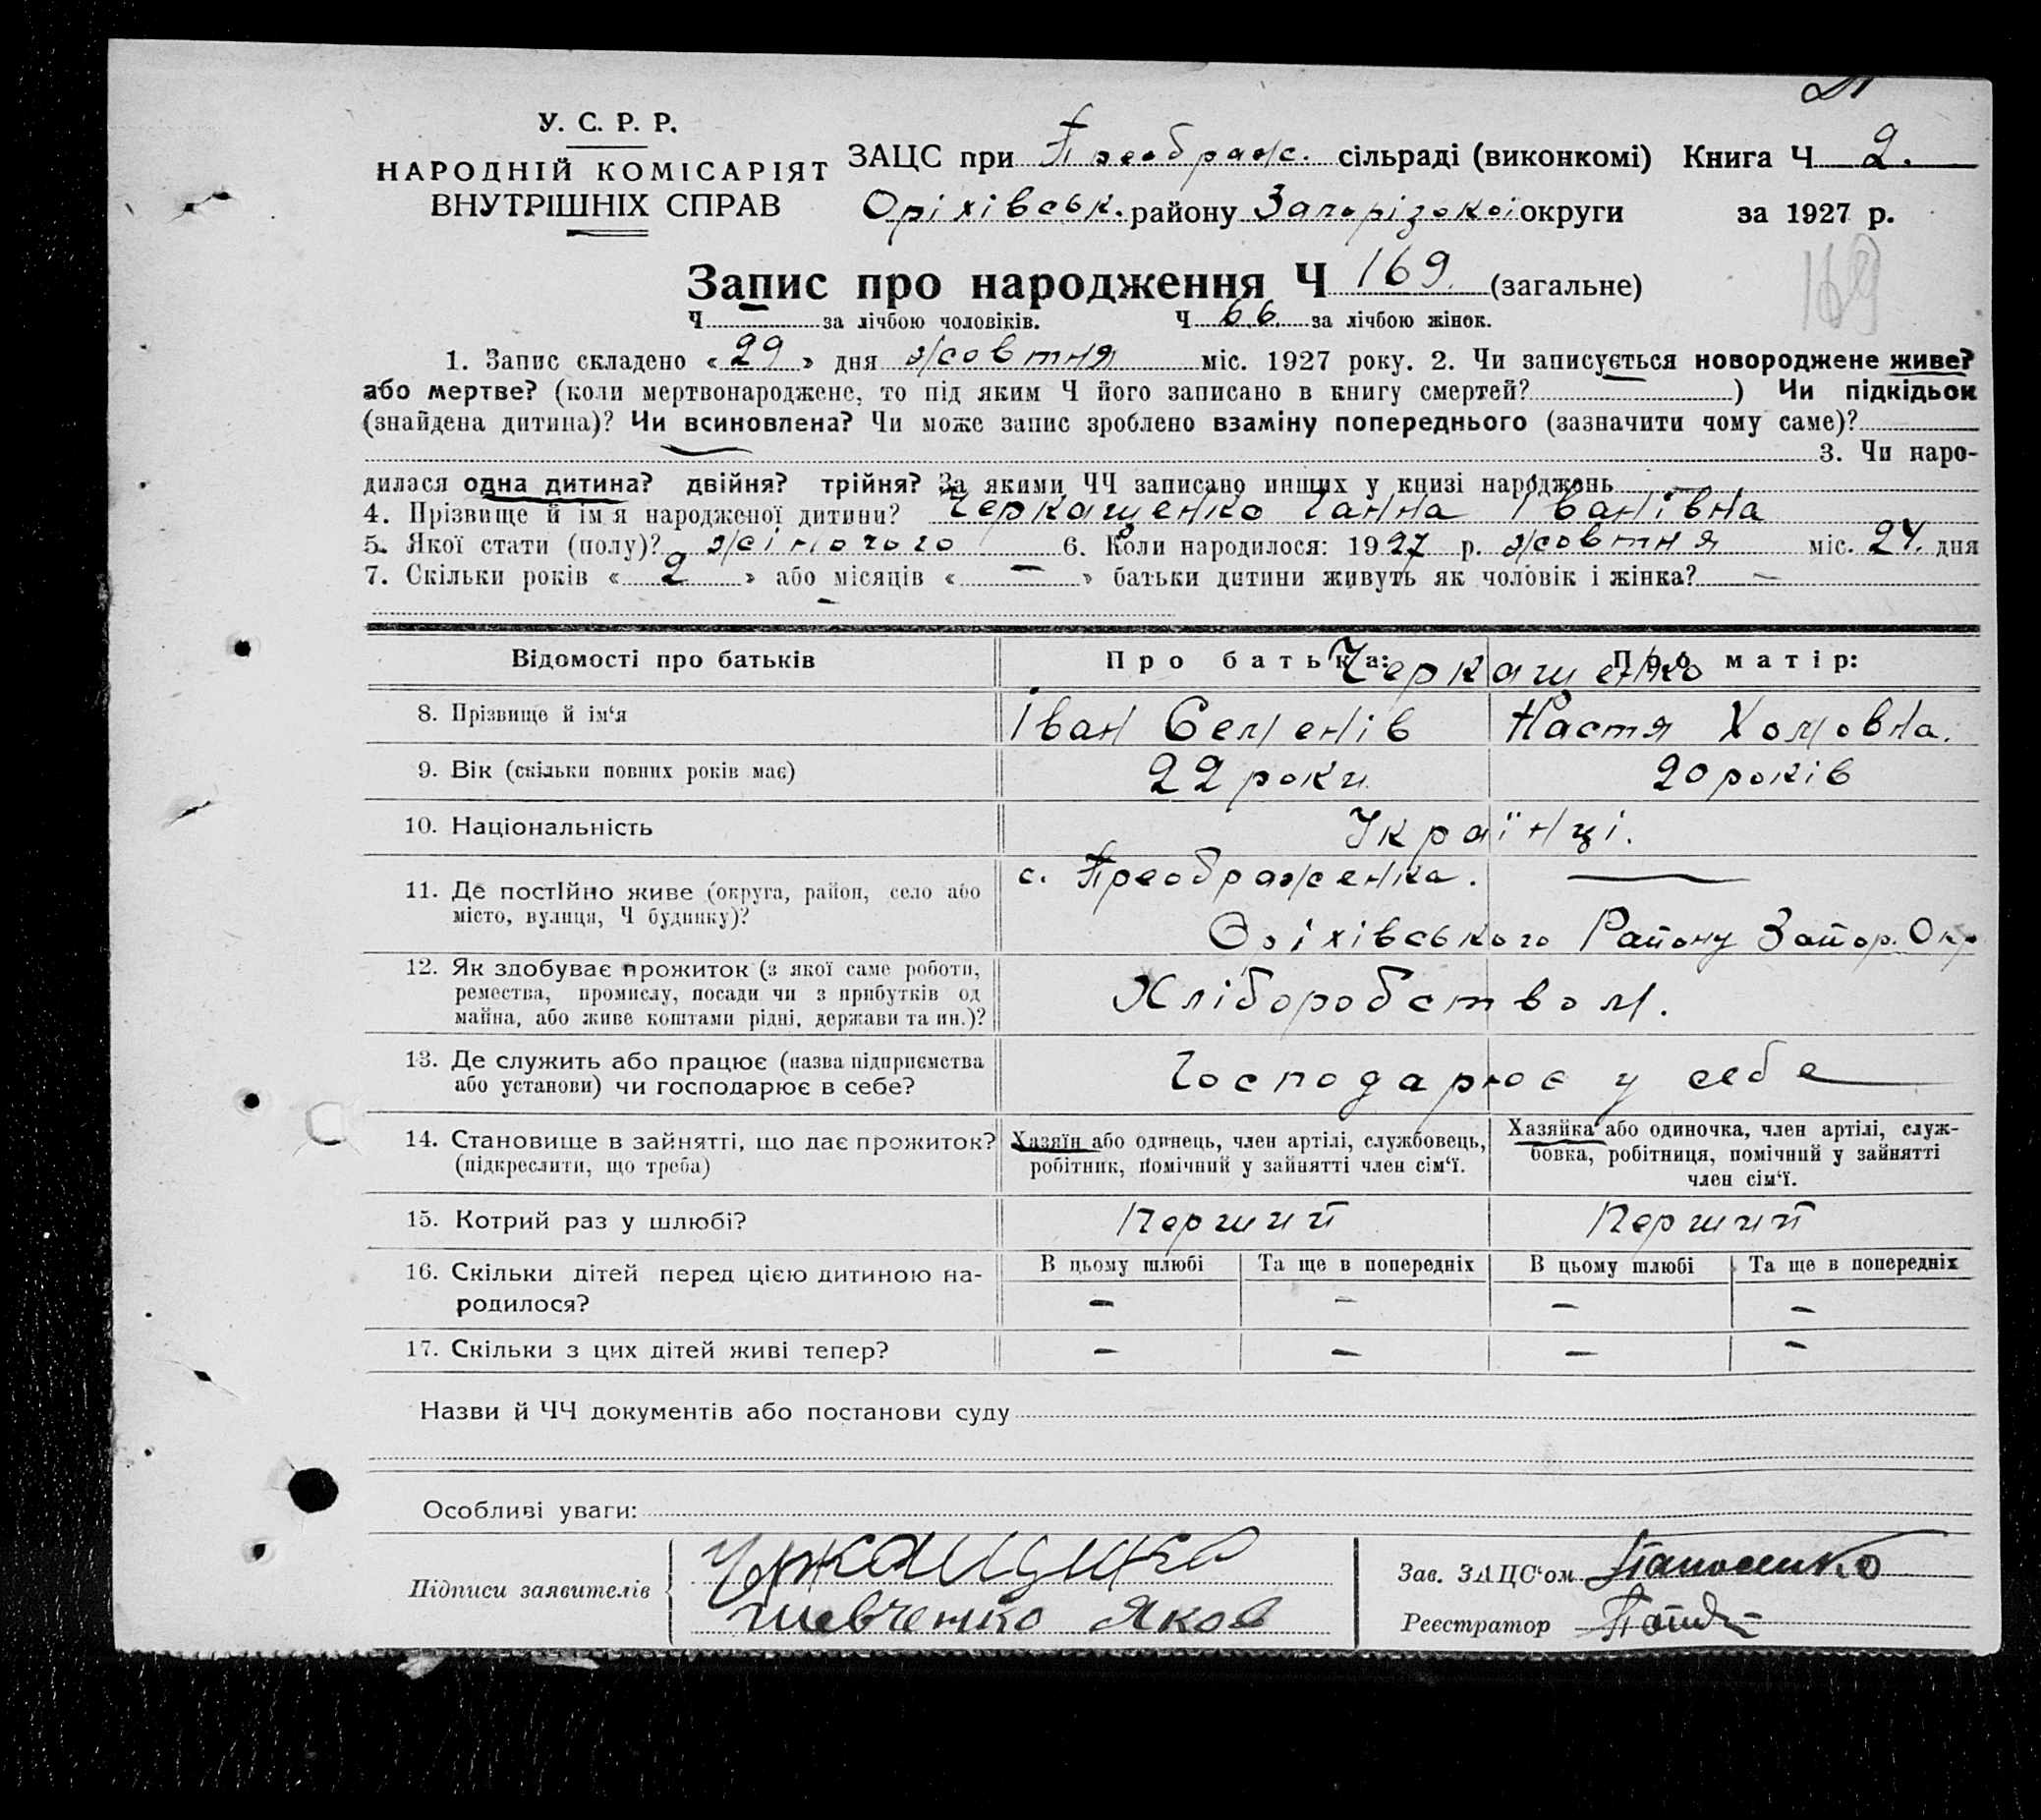 У. С. Р. Р.
НАРОДНІЙ КОМІСАРІЯТ
ВНУТРІШНІХ СПРАВ
ЗАЦС при Преображ. сільраді (виконкомі) Книга Ч 2.
Оріхівськ. району Запорізокої округи за 1927 р.
Запис про народження Ч 169. (загальне)
169
Ч за лічбою чоловіків. Ч 66. за лічбою жінок.
1. Запис складено « 29 » дня жовтня міс. 1927 року. 2. Чи записується новороджене живе?
або мертве? (коли мертвонароджене, то під яким Ч його записано в книгу смертей? ) Чи підкідьок
(знайдена дитина)? Чи всиновлена? Чи може запис зроблено взаміну попереднього (зазначити чому саме)?
3. Чи наро-
дилася одна дитина? двійня? трійня? За якими ЧЧ записано инших у книзі народжень —
4. Прізвище й ім'я народженої дитини? Черкащенко Ганна Іванівна
5. Якої стати (полу)? жіночого 6. Коли народилося: 1927 р. жовтня міс. 24. дня
7. Скільки років « 2 » або місяців « — » батьки дитини живуть як чоловік і жінка? —
Відомості про батьків Про батька: Про матір:
Черкащенко
8. Прізвище й ім‘я Іван Семенів Настя Хомовна.
9. Вік (скільки повних років має) 22 роки 20 років
10. Національність Українці.
11. Де постійно живе (округа, район, село або
місто, вулиця, Ч будинку)?
с. Преображенка. —
Оріхівського Району Запор. Окр
12. Як здобуває прожиток (з якої саме роботи,
ремества, промислу, посади чи з прибутків од
майна, або живе коштами рідні, держави та ин.)?
Хліборобством.
13. Де служить або працює (назва підприємства
або установи) чи господарює в себе?
Господарює у себе
14. Становище в зайнятті, що дає прожиток?
(підкреслити, що треба)
Хазяїн або одинець, член артілі, службовець,
робітник, помічний у зайнятті член сім‘ї.
Хазяйка або одиночка, член артілі, служ-
бовка, робітниця, помічний у зайнятті
член сім‘ї.
15. Котрий раз у шлюбі? Перший Перший
16. Скільки дітей перед цією дитиною на-
родилося?
В цьому шлюбі Та ще в попередніх В цьому шлюбі Та ще в попередніх
— — — —
17. Скільки з цих дітей живі тепер? — — — —
Назви й ЧЧ документів або постанови суду
Особливі уваги:
Підписи заявителів
Шевченко Яков
Зав. ЗАЦС‘ом
Реєстратор